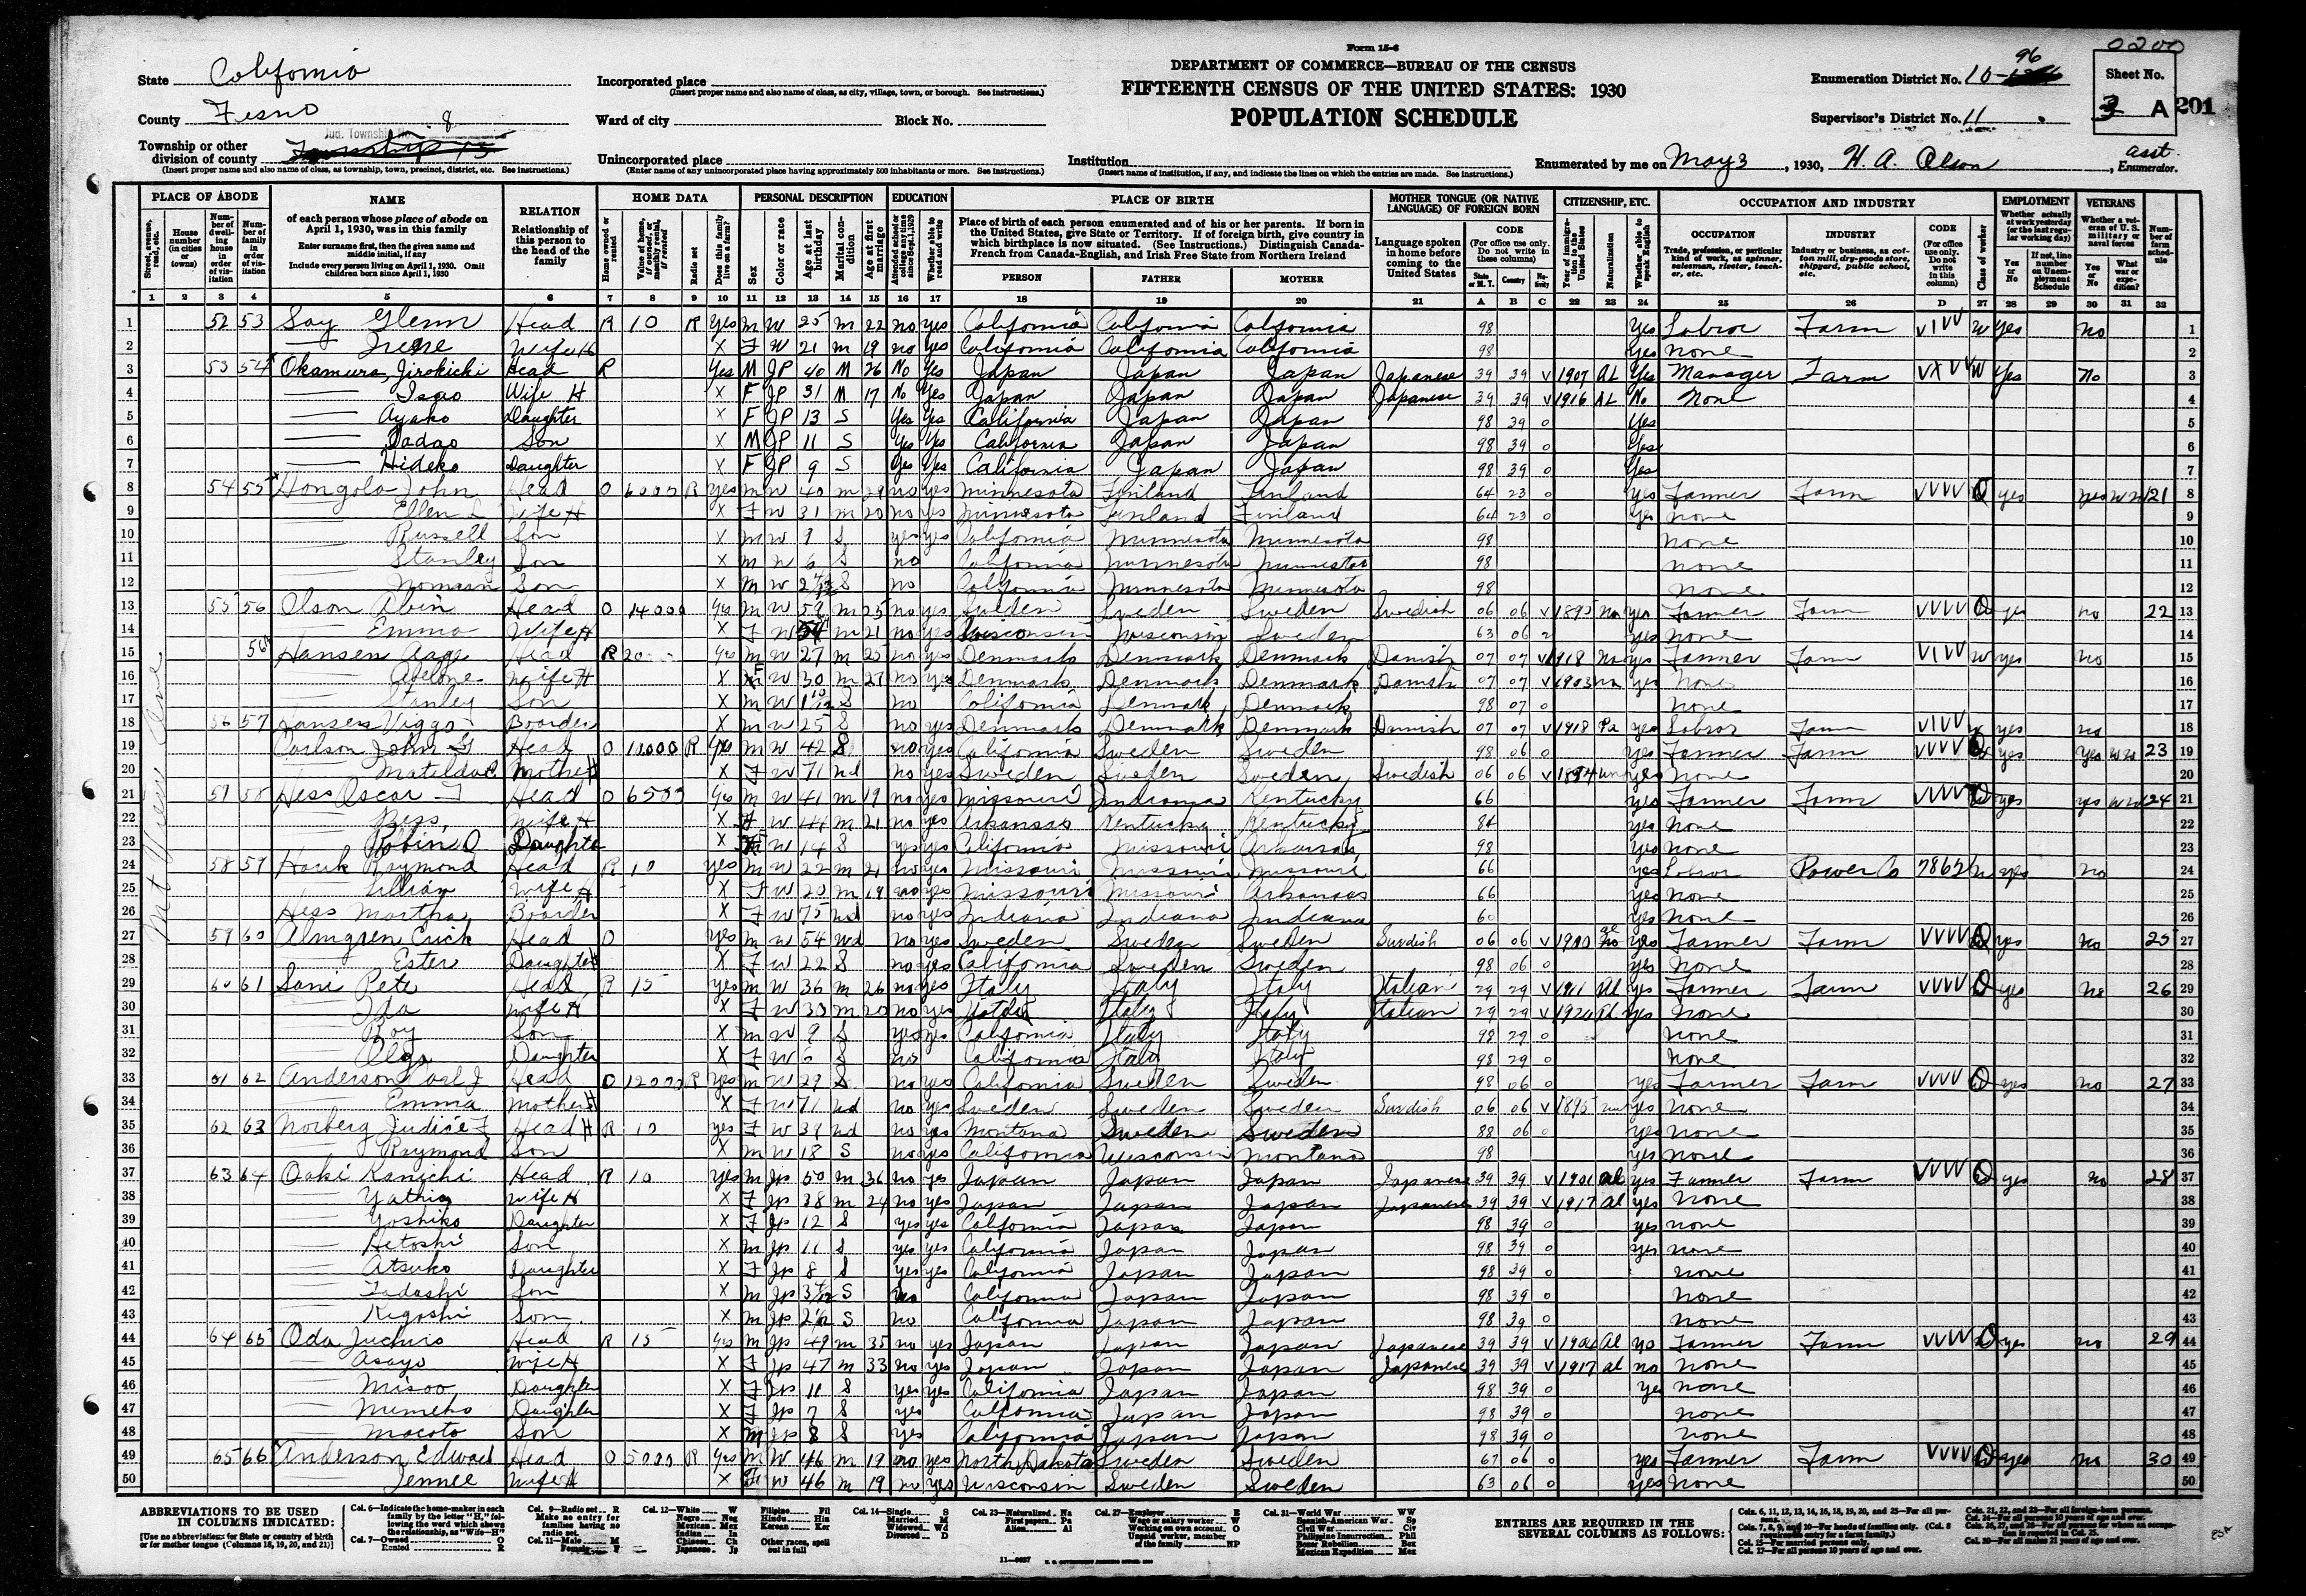 Form 15-6
0200
State California
Incorporated place
(Insert proper name and also name of class, as city, village, town, or borough. See instructions.)
DEPARTMENT OF COMMERCE—BUREAU OF THE CENSUS
FIFTEENTH CENSUS OF THE UNITED STATES: 1930
POPULATION SCHEDULE
Enumeration District No. 10-96
Sheet No.
3 A
201
County Fresno
Ward of city Block No.
Supervisor's District No. 11
Township or other division of county Jud. Township No. 8
(Insert proper name and also name of class, as township, town, precinct, district, etc. See instructions.)
Unincorporated place
(Enter name of any unincorporated place having approximately 500 inhabitants or more. See instructions.)
Institution
(Insert name of institution, if any, and indicate the lines on which the entries are made. See instructions.)
Enumerated by me on May 3, 1930, H. A. Olson, asst. Enumerator.
PLACE OF ABODE NAME RELATION HOME DATA PERSONAL DESCRIPTION EDUCATION PLACE OF BIRTH MOTHER TONGUE (OR NATIVE LANGUAGE) OF FOREIGN BORN CITIZENSHIP, ETC. OCCUPATION AND INDUSTRY EMPLOYMENT VETERANS
1 2 3 4 5 6 7 8 9 10 11 12 13 14 15 16 17 18 19 20 21 A B C 22 23 24 25 26 D 27 28 29 30 31 32
1 52 53 Soy Glenn Head R 10 R Yes M W 25 M 22 no yes California California California 98 Yes Labror Farm W Yes no 1
2 Irene Wife H X F W 21 M 19 no yes California California California 98 yes none 2
3 53 54 Okamura, Jirokichi Head R Yes M JP 40 M 26 No Yes Japan Japan Japan Japanese 39 39 V 1907 AL Yes Manager Farm W Yes No 3
4 Isao Wife H X F JP 31 M 17 No Yes Japan Japan Japan Japanese 39 39 V 1916 AL No None 4
5 Ayako Daughter X F JP 13 S Yes Yes California Japan Japan 98 39 0 Yes 5
6 Tadao Son X M JP 11 S Yes Yes California Japan Japan 98 39 0 Yes 6
7 Hideko Daughter X F JP 9 S Yes Yes California Japan Japan 98 39 0 Yes 7
8 54 55 Hongola John Head O 6000 R yes M W 40 M 29 no yes Minnesota Finland Finland 64 23 0 yes Farmer Farm VVVV O yes yes WW 21 8
9 Ellen L Wife H X F W 31 M 20 no yes Minnesota Finland Finland 64 23 0 yes none 9
10 Russell Son X M W 9 S yes yes California Minnesota Minnesota 98 none 10
11 Stanley Son X M W 6 S no California Minnesota Minnesota 98 none 11
12 Norman Son X M W S no California Minnesota Minnesota 98 none 12
13 55 56 Olson Albin Head O 14000 Yes M W 59 M 25 no yes Sweden Sweden Sweden Swedish 06 06 V 1895 na yes Farmer Farm VVVV O yes no 22 13
14 Emma Wife H X F W 54 M 21 no yes Wisconsin Wisconsin Sweden 63 06 2 yes none 14
15 56 Hansen Aage Head R 20 Yes M W 27 M 25 no yes Denmark Denmark Denmark Danish 07 07 V 1918 na yes Farmer Farm W yes no 15
16 Wife H X F W 30 M 27 no yes Denmark Denmark Denmark Danish 07 07 V 1903 na yes None 16
17 Stanley Son X M W S no California Denmark Denmark 98 07 0 none 17
18 56 57 Jansen Viggo Boarder X M W 25 S no yes Denmark Denmark Denmark Danish 07 07 V 1918 Pa yes Labror Farm yes no 18
19 Carlson John G Head O 10000 R Yes M W 42 S no yes California Sweden Sweden 98 06 0 Yes Farmer Farm VVVV O yes Yes WW 23 19
20 Matelda C Mother H X F W 71 Wd no yes Sweden Sweden Sweden Swedish 06 06 V 1884 un yes None 20
21 57 58 Hess Oscar T Head O 6500 Yes M W 41 M 19 no yes Missouri Indiana Kentucky 66 yes Farmer Farm VVVV O yes yes WW 24 21
22 Bess Wife H X F W 44 M 21 no yes Arkansas Kentucky Kentucky 84 yes None 22
23 Robbin O Daughter X F W 14 S yes yes California Missouri Arkansas 98 Yes none 23
24 58 59 Houk Raymond Head R 10 yes M W 22 M 21 no yes Missouri Missouri Missouri 66 yes Labror Power Co 7862 W yes no 24
25 Lillian Wife H X F W 20 M 19 no yes Missouri Missouri Arkansas 66 yes none 25
26 Hess Martha Boarder X F W 75 Wd no yes Indiana Indiana Indiana 60 yes none 26
27 59 60 Almgren Erick Head O yes M W 54 Wd no yes Sweden Sweden Sweden Swedish 06 06 V 1900 yes Farmer Farm VVVV O yes no 25 27
28 Ester Daughter H X F W 22 S no yes California Sweden Sweden 98 06 0 yes none 28
29 60 61 Sani Pete Head R 15 yes M W 36 M 26 no yes Italy Italy Italy Italian 29 29 V 1911 Al yes Farmer Farm VVVV O yes no 26 29
30 Ida Wife H X F W 30 M 20 no yes Italy Italy Italy Italian 29 29 V 1920 Al yes none 30
31 Roy Son X M W 9 S yes yes California Italy Italy 98 29 0 none 31
32 Olga Daughter X F W 6 S no California Italy Italy 98 29 0 None 32
33 61 62 Anderson Carl J Head O 12000 R Yes M W 29 S no yes California Sweden Sweden 98 06 0 yes Farmer Farm VVVV O yes no 27 33
34 Emma Mother H X F W 71 Wd no yes Sweden Sweden Sweden Swedish 06 06 V 1895 yes none 34
35 62 63 Norberg Judice F Head H R 10 yes F W 39 Wd no yes Montana Sweden Sweden 88 06 0 yes none 35
36 Raymond Son X M W 18 S no yes California Wisconsin Montana 98 yes none 36
37 63 64 Oaki Kanichi Head R 10 yes M Jp 50 M 36 no yes Japan Japan Japan Japanese 39 39 V 1901 Al yes Farmer Farm VVVV O yes no 28 37
38 Wife H X F Jp 38 M 24 no yes Japan Japan Japan Japanese 39 39 V 1917 Al yes none 38
39 Yoshiko Daughter X F Jp 12 S yes yes California Japan Japan 98 39 0 yes none 39
40 Hetoshi Son X M Jp 11 S yes yes California Japan Japan 98 39 0 yes none 40
41 Atsuko Daughter X F Jp 8 S yes yes California Japan Japan 98 39 0 none 41
42 Tadashi Son X M Jp S no California Japan Japan 98 39 0 none 42
43 Kigoshi Son X M Jp S no California Japan Japan 98 39 0 none 43
44 64 65 Oda Juchuro Head R 15 Yes M Jp 49 M 35 no yes Japan Japan Japan Japanese 39 39 V 1904 Al Farmer Farm VVVV O yes no 29 44
45 Asayo Wife H X F Jp 47 M 33 no yes Japan Japan Japan Japanese 39 39 V 1917 al no none 45
46 Misao Daughter X F Jp 11 S yes yes California Japan Japan 98 39 0 yes none 46
47 Mumeko Daughter X F Jp 7 S yes California Japan Japan 98 39 0 none 47
48 Macoto Son X M Jp 8 S yes California Japan Japan 98 39 0 none 48
49 65 66 Anderson Edward Head O 5000 R Yes M W 46 M 19 no yes North Dakota Sweden Sweden 67 06 0 yes Farmer Farm VVVV O yes no 30 49
50 Jennee Wife H X F W 46 M 19 no yes Wisconsin Sweden Sweden 63 06 0 yes None 50
Mt View Ave
ABBREVIATIONS TO BE USED IN COLUMNS INDICATED:
[Use no abbreviations for State or country of birth or for mother tongue (Columns 18, 19, 20, and 21)]
ENTRIES ARE REQUIRED IN THE SEVERAL COLUMNS AS FOLLOWS:
11—9627 U. S. GOVERNMENT PRINTING OFFICE: 1930